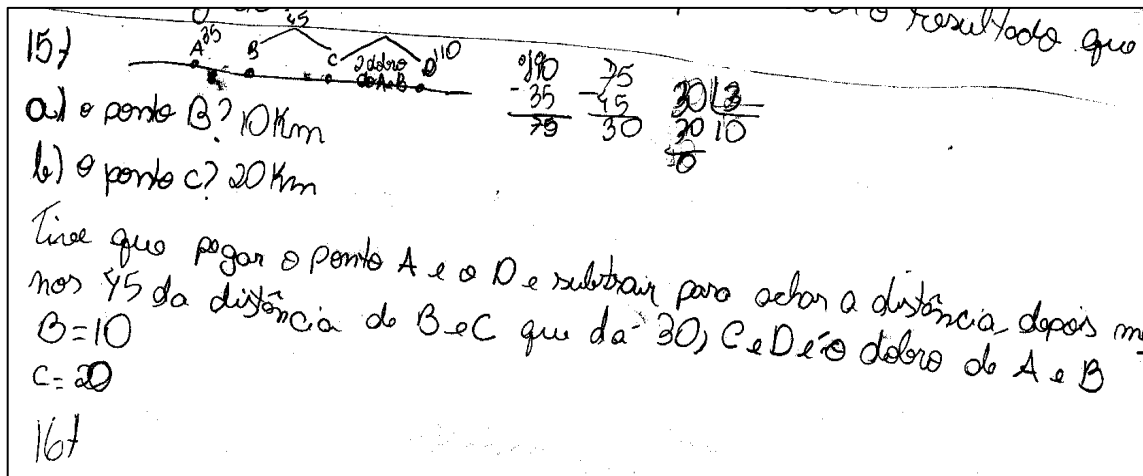 o resultado que
15)
45
A 35 B C 2 dobro do A e B D 110
110 75 30 3
- 35 - 45 30 10
75 30 0
a) o ponto B? 10 Km
b) o ponto C? 20 Km
Tive que pegar o ponto A e o D e subtrair para achar a distância, depois me
nos 45 da distância do B e C que da 30, C e D é o dobro do A e B
B = 10
C = 20
16)